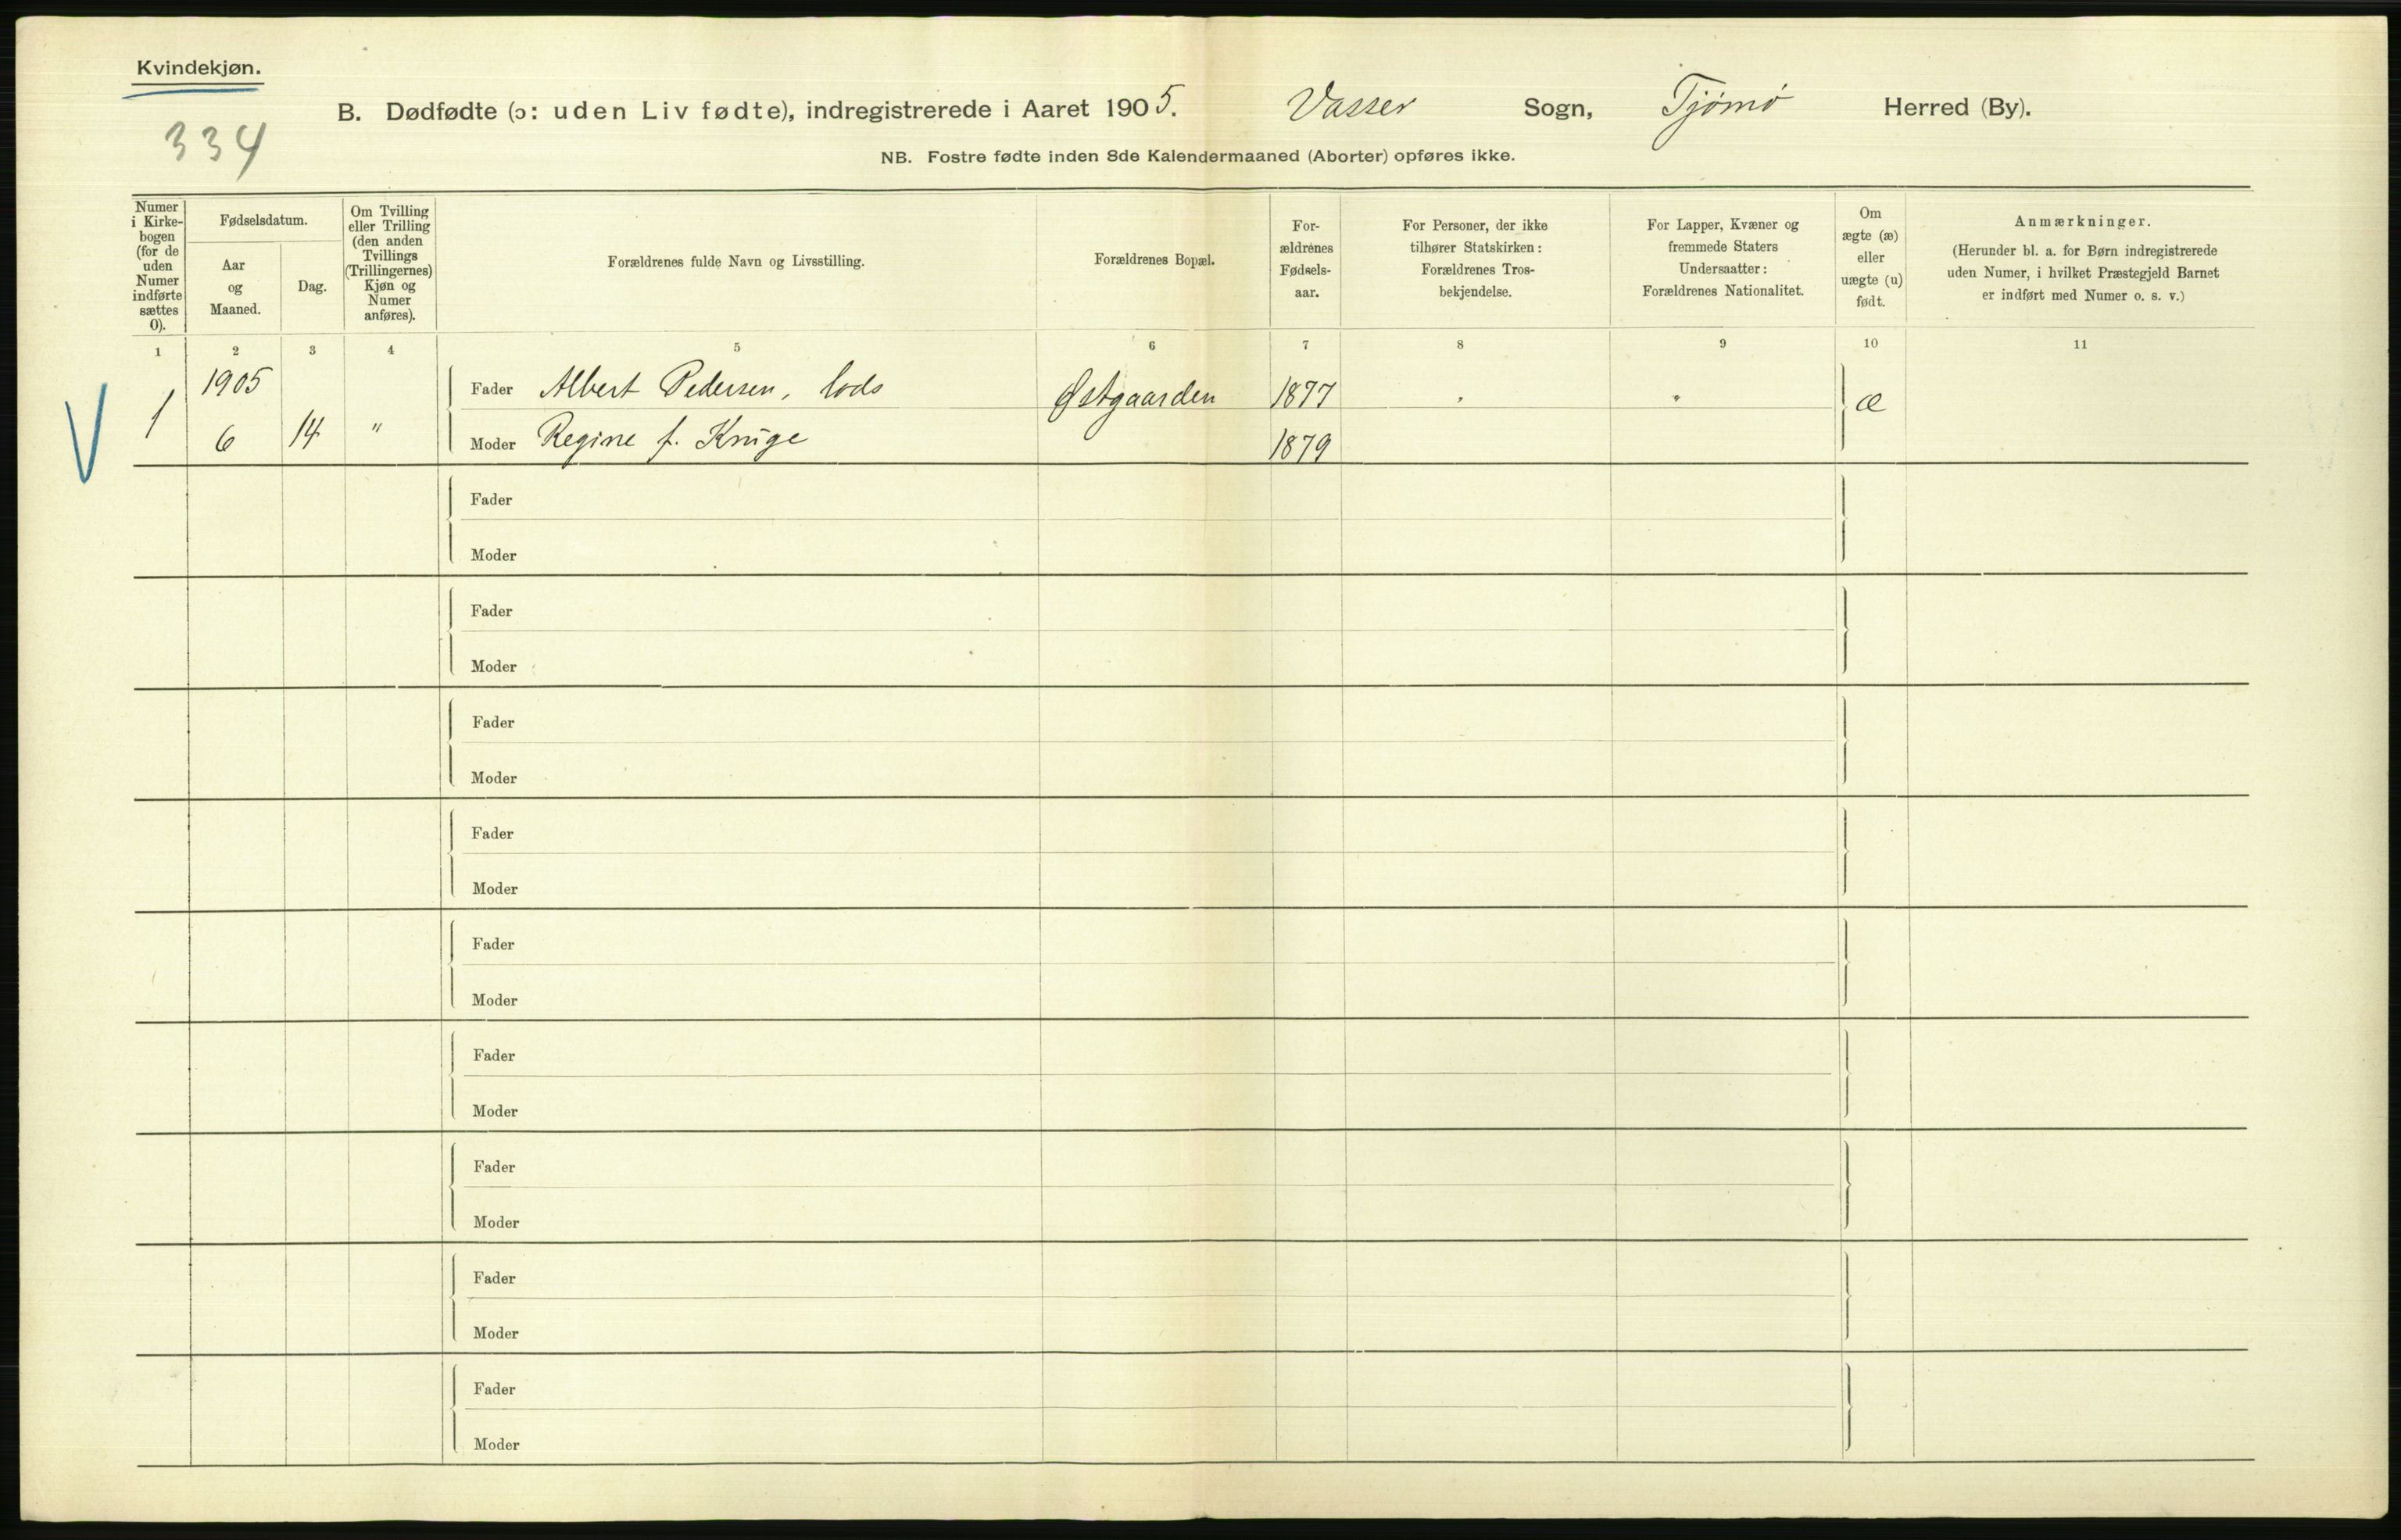 Kvindekjøn.
334
B. Dødfødte (ɔ: uden Liv fødte), indregistrerede i Aaret 1905. Vasser Sogn, Tjømø Herred (By).
NB. Fostre fødte inden 8de Kalendermaaned (Aborter) opføres ikke.
Numer i Kirkebogen (for de uden Numer indførte sættes 0).
Fødselsdatum.
Aar og Maaned.
Dag.
Om Tvilling eller Trilling (den anden Tvillings (Trillingernes) Kjøn og Numer anføres).
Forældrenes fulde Navn og Livsstilling.
Forældrenes Bopæl.
Forældrenes Fødselsaar.
For Personer, der ikke tilhører Statskirken: Forældrenes Trosbekjendelse.
For Lapper, Kvæner og fremmede Staters Undersaatter: Forældrenes Nationalitet.
Om ægte (æ) eller uægte (u) født.
Anmærkninger.
(Herunder bl. a. for Børn indregistrerede uden Numer, i hvilket Præstegjeld Barnet er indført med Numer o. s. v.)
1 2 3 4 5 6 7 8 9 10 11
V 1 1905 Fader Albert Pedersen, lods Østgaarden 1877 æ
6 14 " Moder Regine f. Kruge 1879
Fader
Moder
Fader
Moder
Fader
Moder
Fader
Moder
Fader
Moder
Fader
Moder
Fader
Moder
Fader
Moder
Fader
Moder